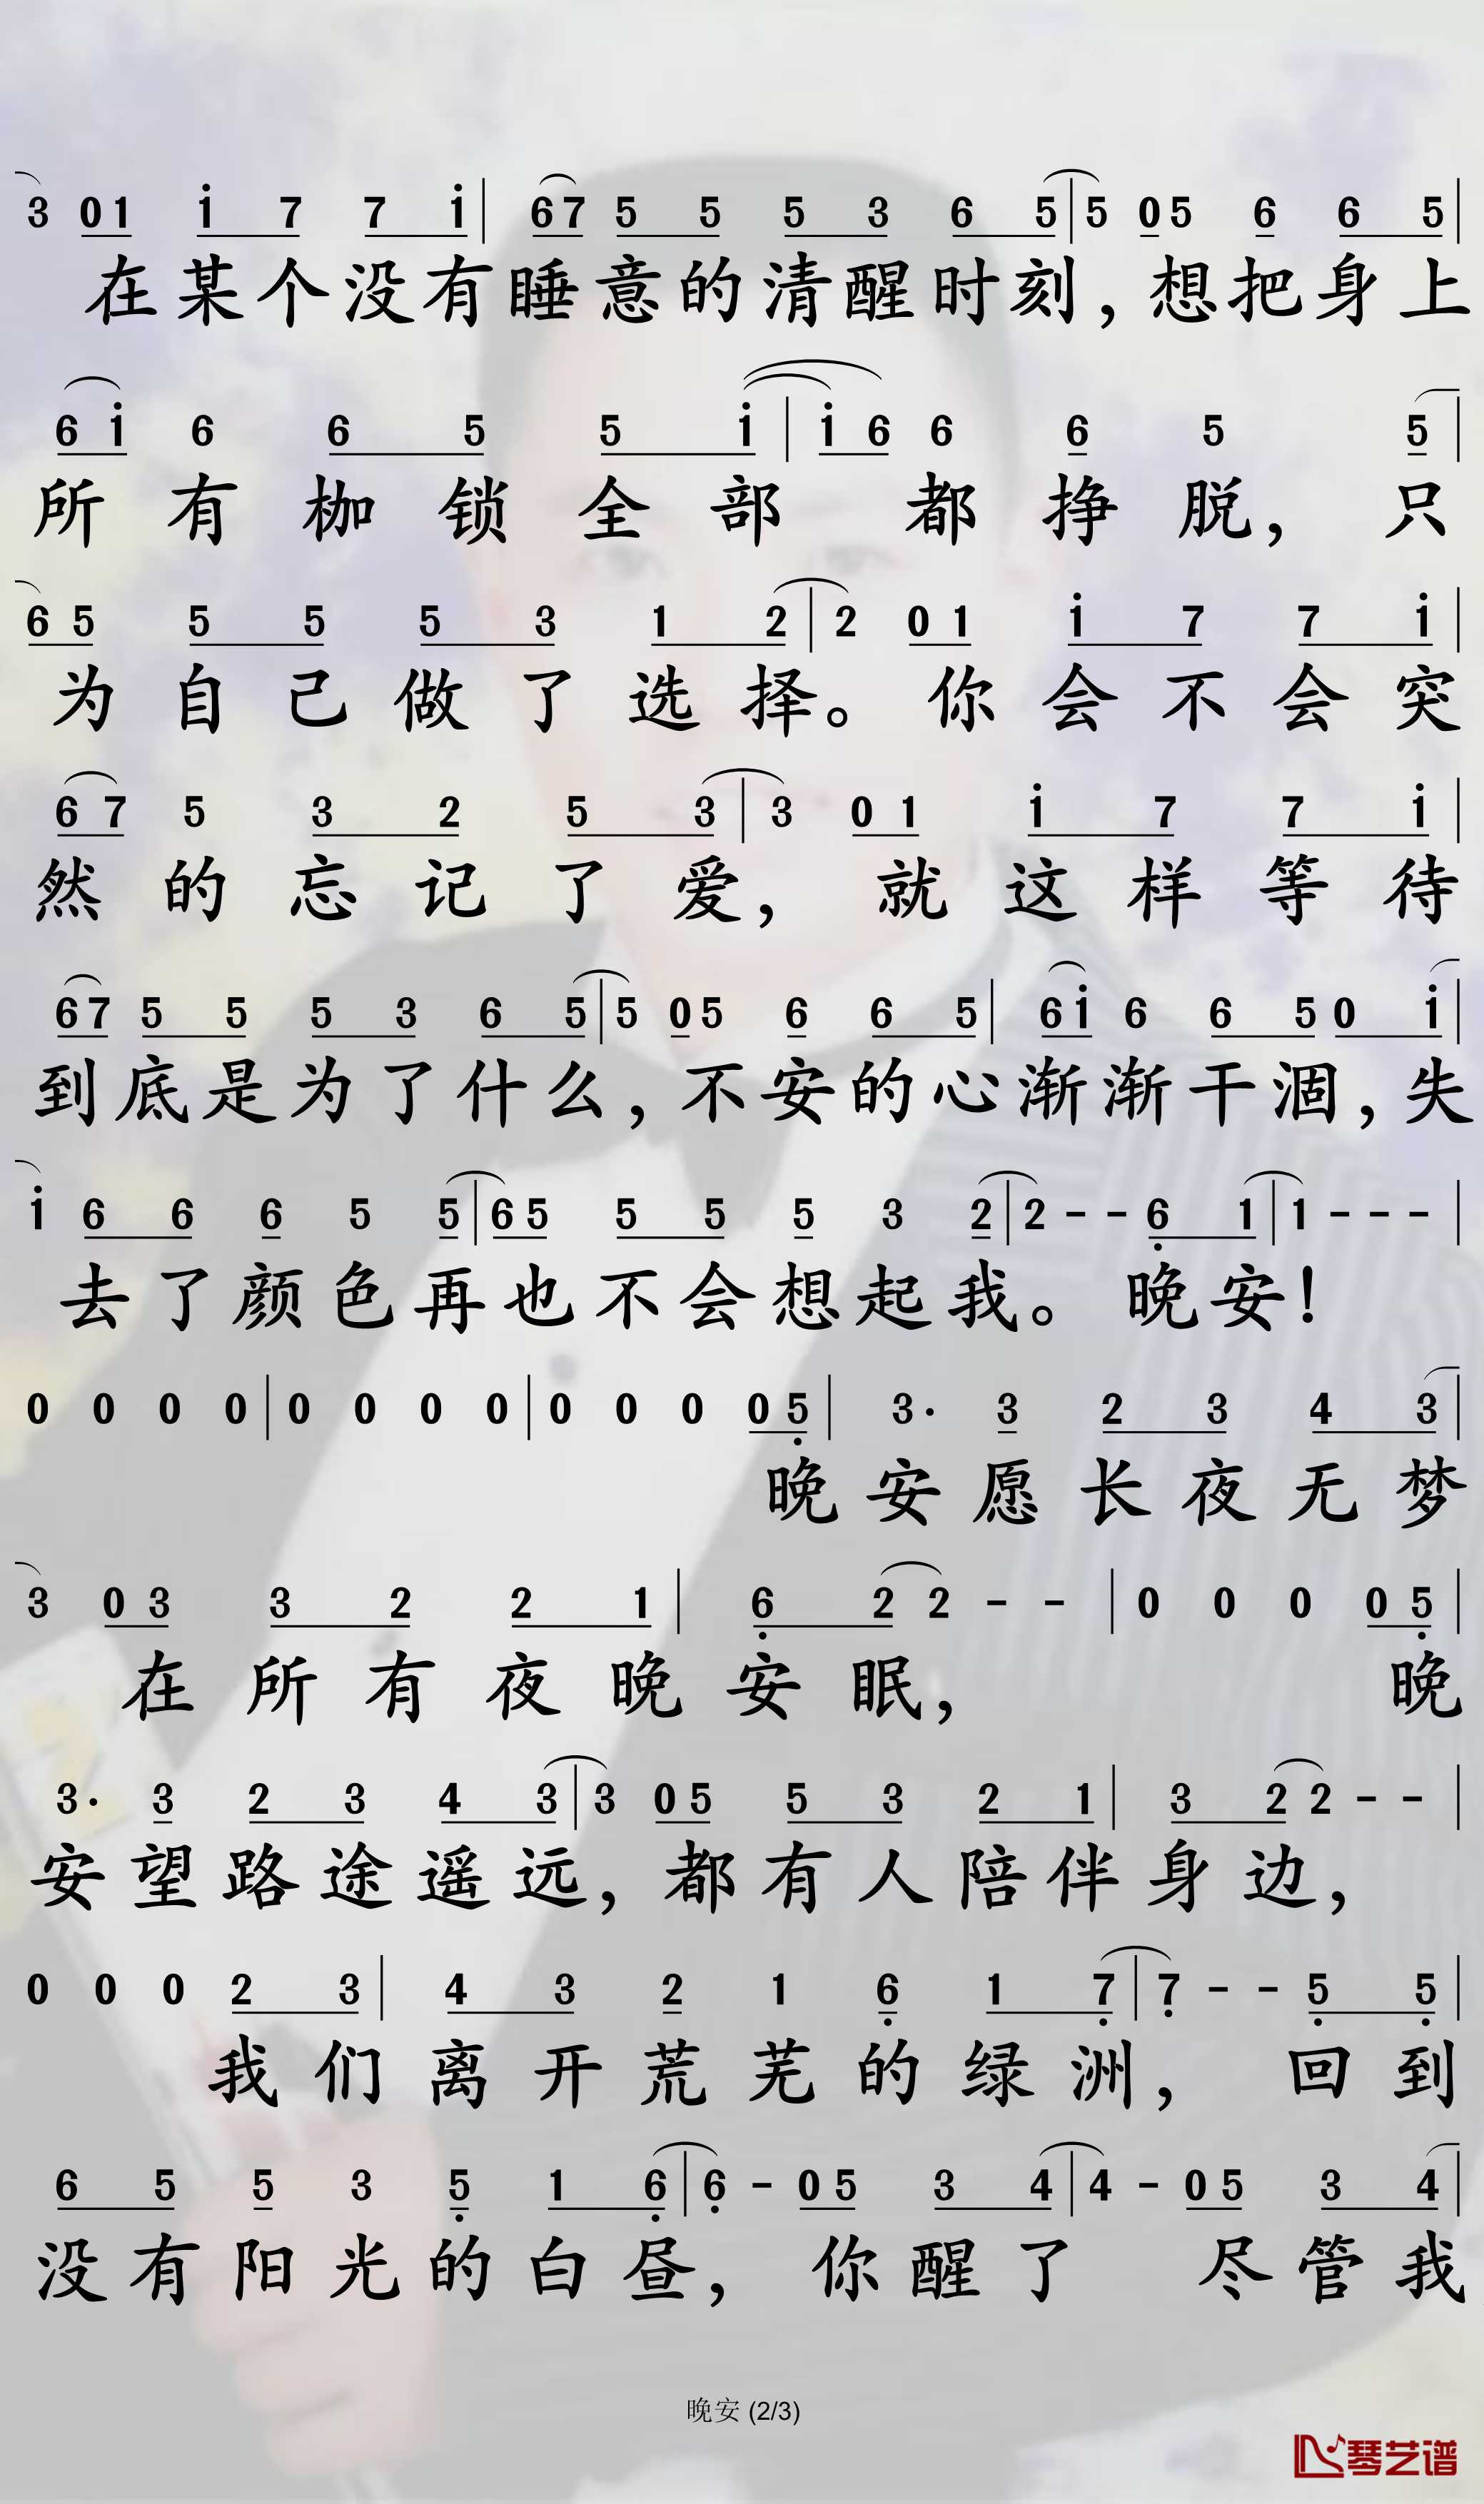 3 01 i 7 7 i | 67 5 5 5 3 6 5 | 5 05 6 6 5 |
在某个没有睡意的清醒时刻，想把身上
6 i 6 6 5 5 i | i 6 6 6 5 5 |
所有枷锁全部都挣脱，只
6 5 5 5 5 3 1 2 | 2 0 1 i 7 7 i |
为自己做了选择。你会不会突
6 7 5 3 2 5 3 | 3 0 1 i 7 7 i |
然的忘记了爱，就这样等待
67 5 5 5 3 6 5 | 5 05 6 6 5 | 6 i 6 6 5 0 i |
到底是为了什么，不安的心渐渐干涸，失
i 6 6 6 5 5 | 6 5 5 5 5 3 2 | 2 - - 6̣ 1 | 1 - - - |
去了颜色再也不会想起我。晚安！
0 0 0 0 | 0 0 0 0 | 0 0 0 0 5̣ | 3· 3 2 3 4 3 |
晚安愿长夜无梦
3 0 3 3 2 2 1 | 6̣ 2 2 - - | 0 0 0 0 5̣ |
在所有夜晚安眠，晚
3· 3 2 3 4 3 | 3 0 5 5 3 2 1 | 3 2 2 - - |
安望路途遥远，都有人陪伴身边，
0 0 0 2 3 | 4 3 2 1 6̣ 1 7̣ | 7̣ - - 5̣ 5̣ |
我们离开荒芜的绿洲，回到
6 5 5 3 5̣ 1 6̣ | 6̣ - 0 5 3 4 | 4 - 0 5 3 4 |
没有阳光的白昼，你醒了 尽管我
晚安 (2/3)
琴艺谱